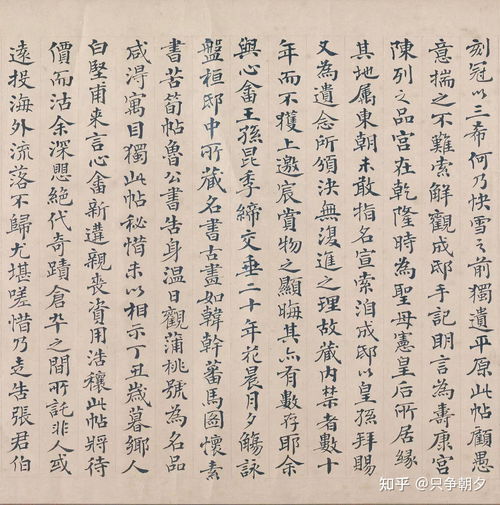 刻冠以三希何乃快雪之前獨遺平原此帖顧愚
意揣之不難索解觀成邸手記明言為壽康宮
陳列之品宮在乾隆時為聖母憲皇后所居緣
其地屬東朝未敢指名宣索洎成邸以皇孫拜賜
又為遺念所頒決無復進之理故藏內禁者數十
年而不獲上邀宸賞物之顯晦其亦有數存耶余
與心畬王孫昆季締交垂二十年花晨月夕觴詠
盤桓邸中所藏名書古畫如韓幹蕃馬圖懷素
書苦筍帖魯公書告身溫日觀蒲桃號為名品
咸得寓目獨此帖秘惜未以相示丁丑歲暮鄉人
白堅甫來言心畬新遘親喪資用浩穰此帖將待
價而沽余深懼絕代奇蹟倉卒之間所託非人或
遠投海外流落不歸尤堪嗟惜乃走告張君伯
知乎 @只争朝夕